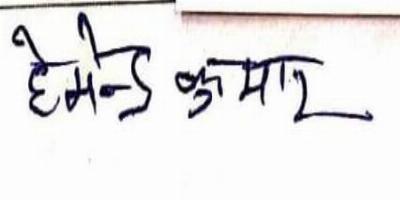 हेमेन्द्र कुमार